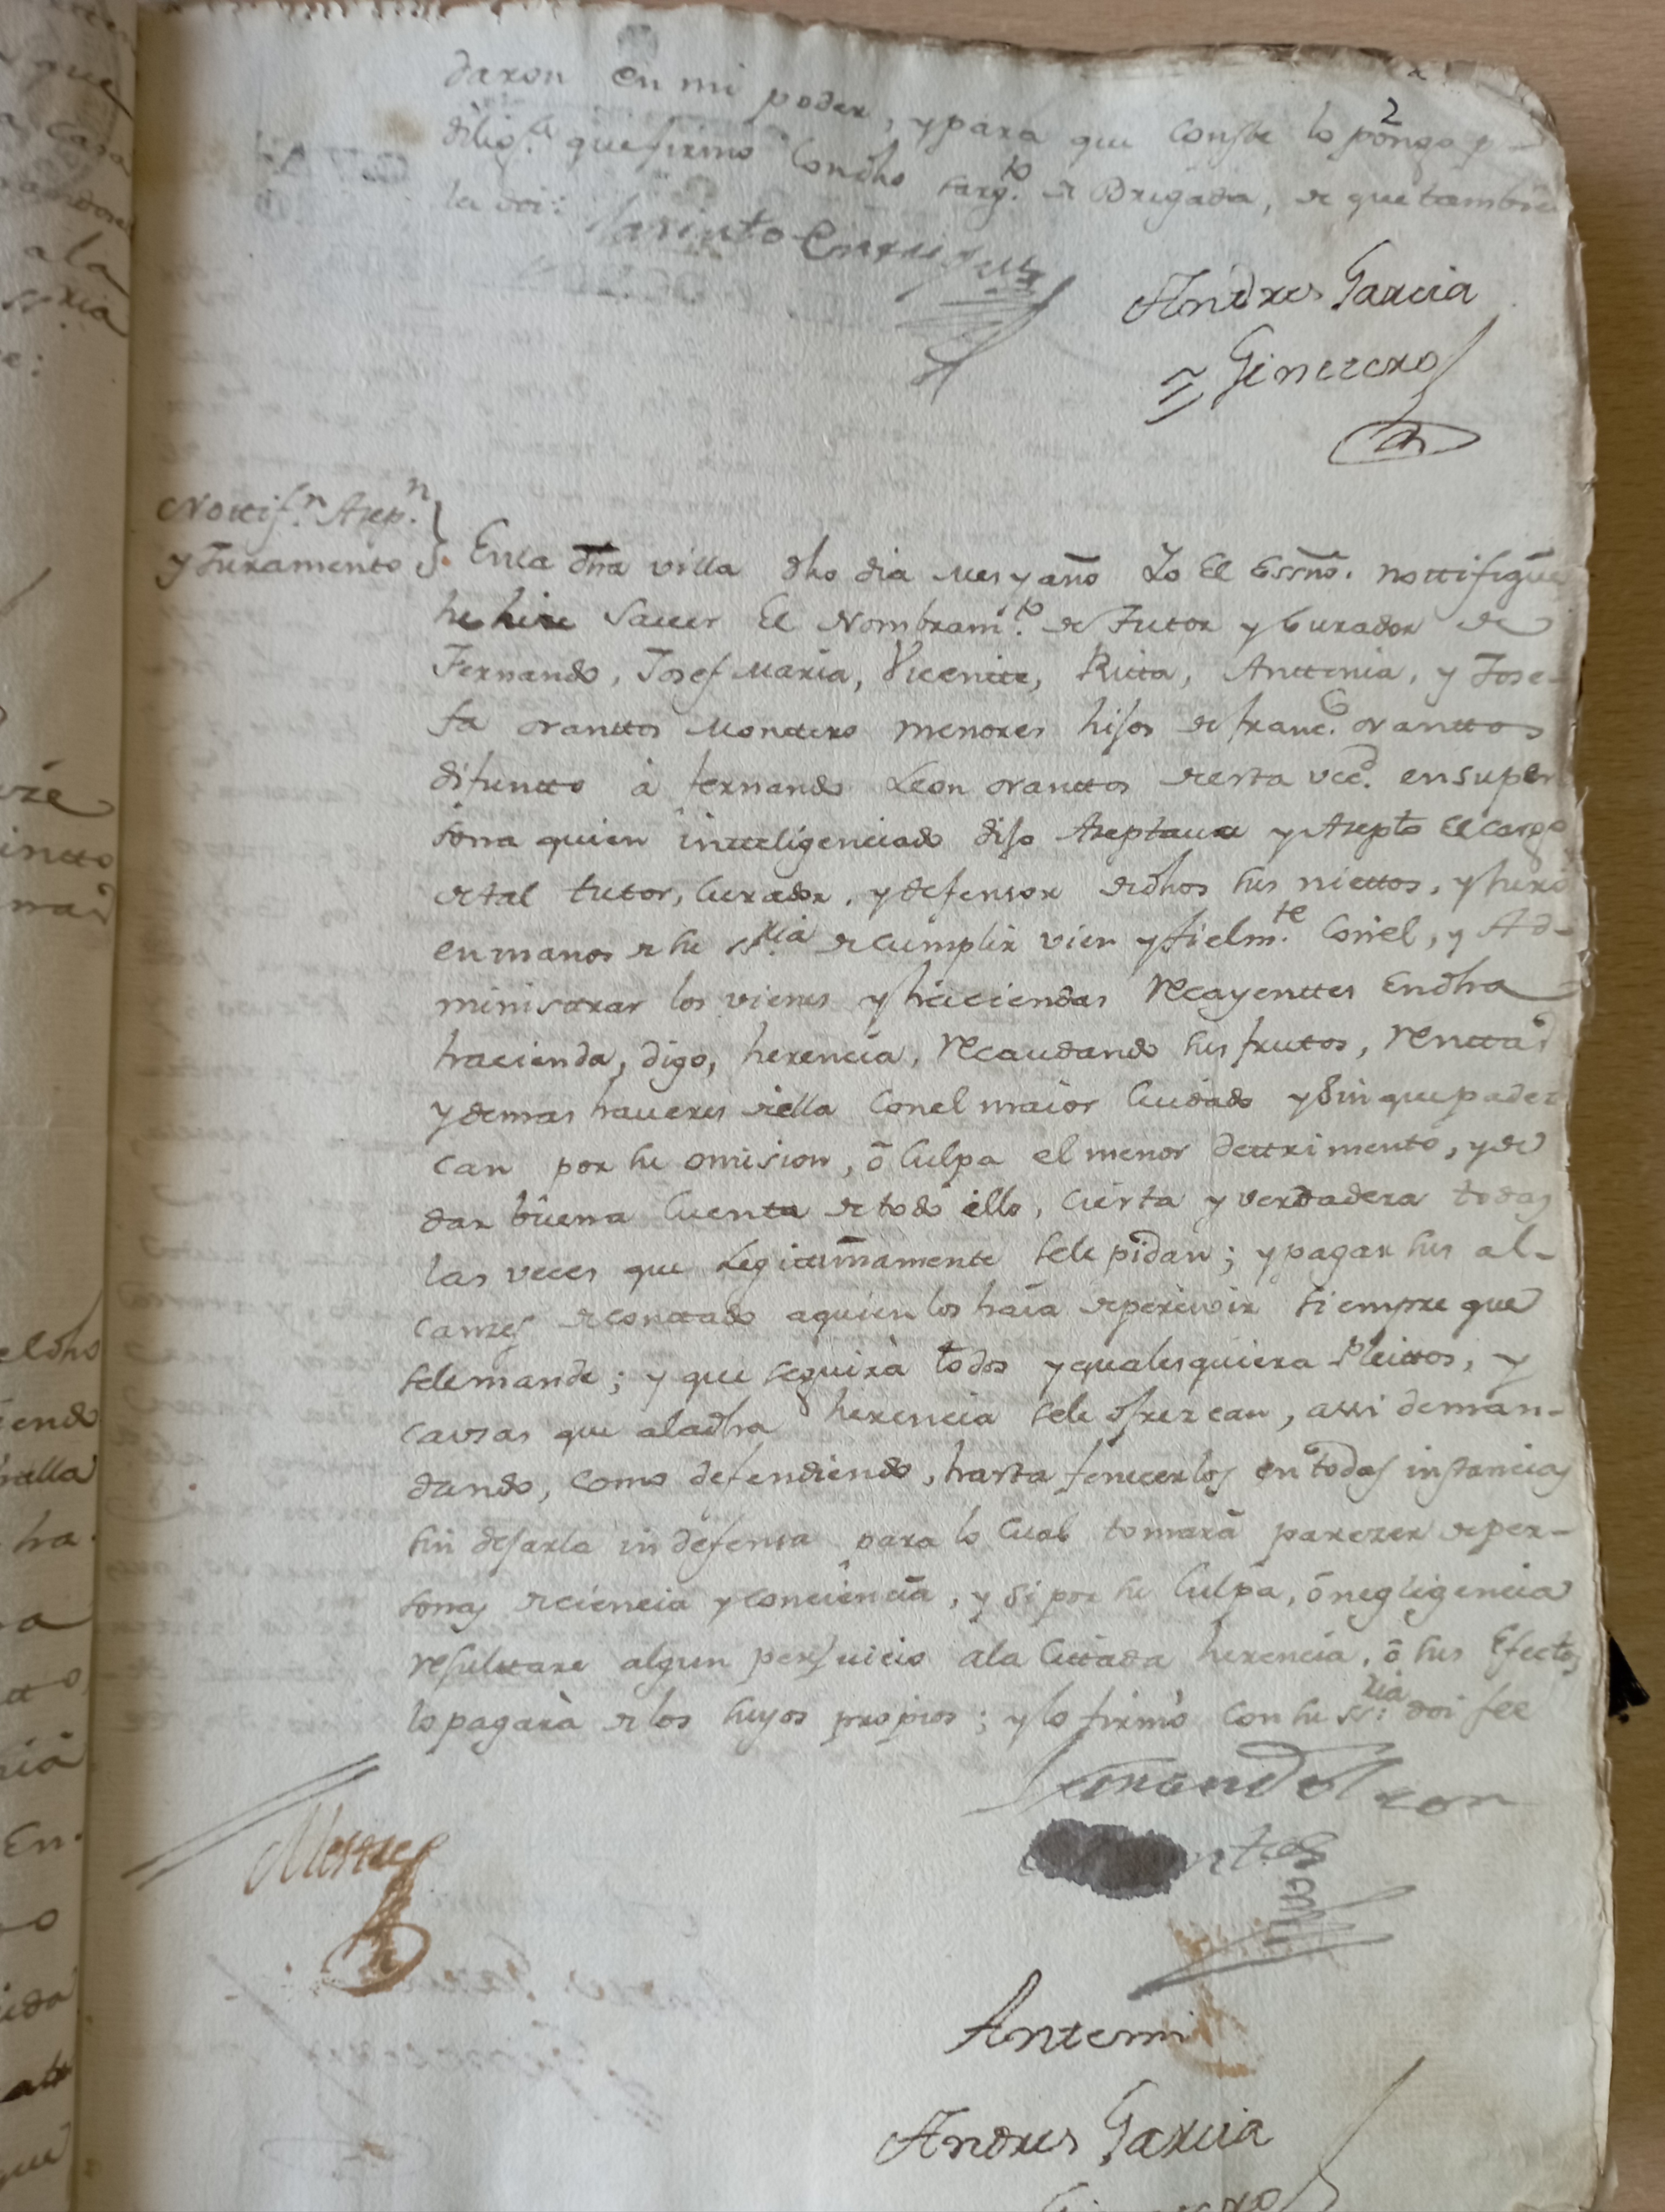 2
daron en mi poder, y para que conste lo pongo p.
dilig.ª que firmo con dho sarg.to de Brigada, de que tambien
la doi:
Jacinto Enrriquez
Andres Garcia
Ginerero
Nottif.n Asep.n
y Juramento
En la dha villa dho dia mes y año Yo El Essno. nottifiqué
he hise saver El Nombram.to de Tutor y Curador de
Fernando, Josef Maria, Vicentte, Ritta, Anttonia, y Jose-
fa oranttos Montero menores hijos de franc.co oranttos
difuntto à fernando Leon oranttos de esta vec.d en su per
sona quien intteligenciado dijo Aseptava y Aseptó El cargo
de tal tutor, Curador, y defensor de dhos sus niettos, y juró
en manos de su ss.ria de cumplir vien y fielm.te con el, y Ad-
ministrar los vienes y haciendas Recayenttes En dha
hacienda, digo, herencia, Recaudando sus frutos, Renttas
y demas haveres de ella con el maior Cuidado y Sin que padez
can por su omision, ó Culpa el menor dettrimento, y de
dar buena Cuenta de todo ello, cierta y verdadera todas
las veces que Legitimamente sele pidan; y pagar sus al-
canzes de conttado a quien los haia de perciuir siempre que
sele mande; y que seguirà todos y qualesquiera Pleittos, y
causas que a la dha herencia sele ofrezcan, assi deman-
dando, como defendiendo, hasta fenecerlos en todas instancias
sin dejarla indefensa para lo Cual tomará parezer de per-
sonas de ciencia y conciencia, y Si por su Culpa, ó negligencia
resulttare algun perjuicio a la Cittada herencia, ó sus Efectos
lo pagarà de los suyos propios; y lo firmó con su ss.ria doi fee
Fernando Leon
Mestre
Antemi
Andres Garcia